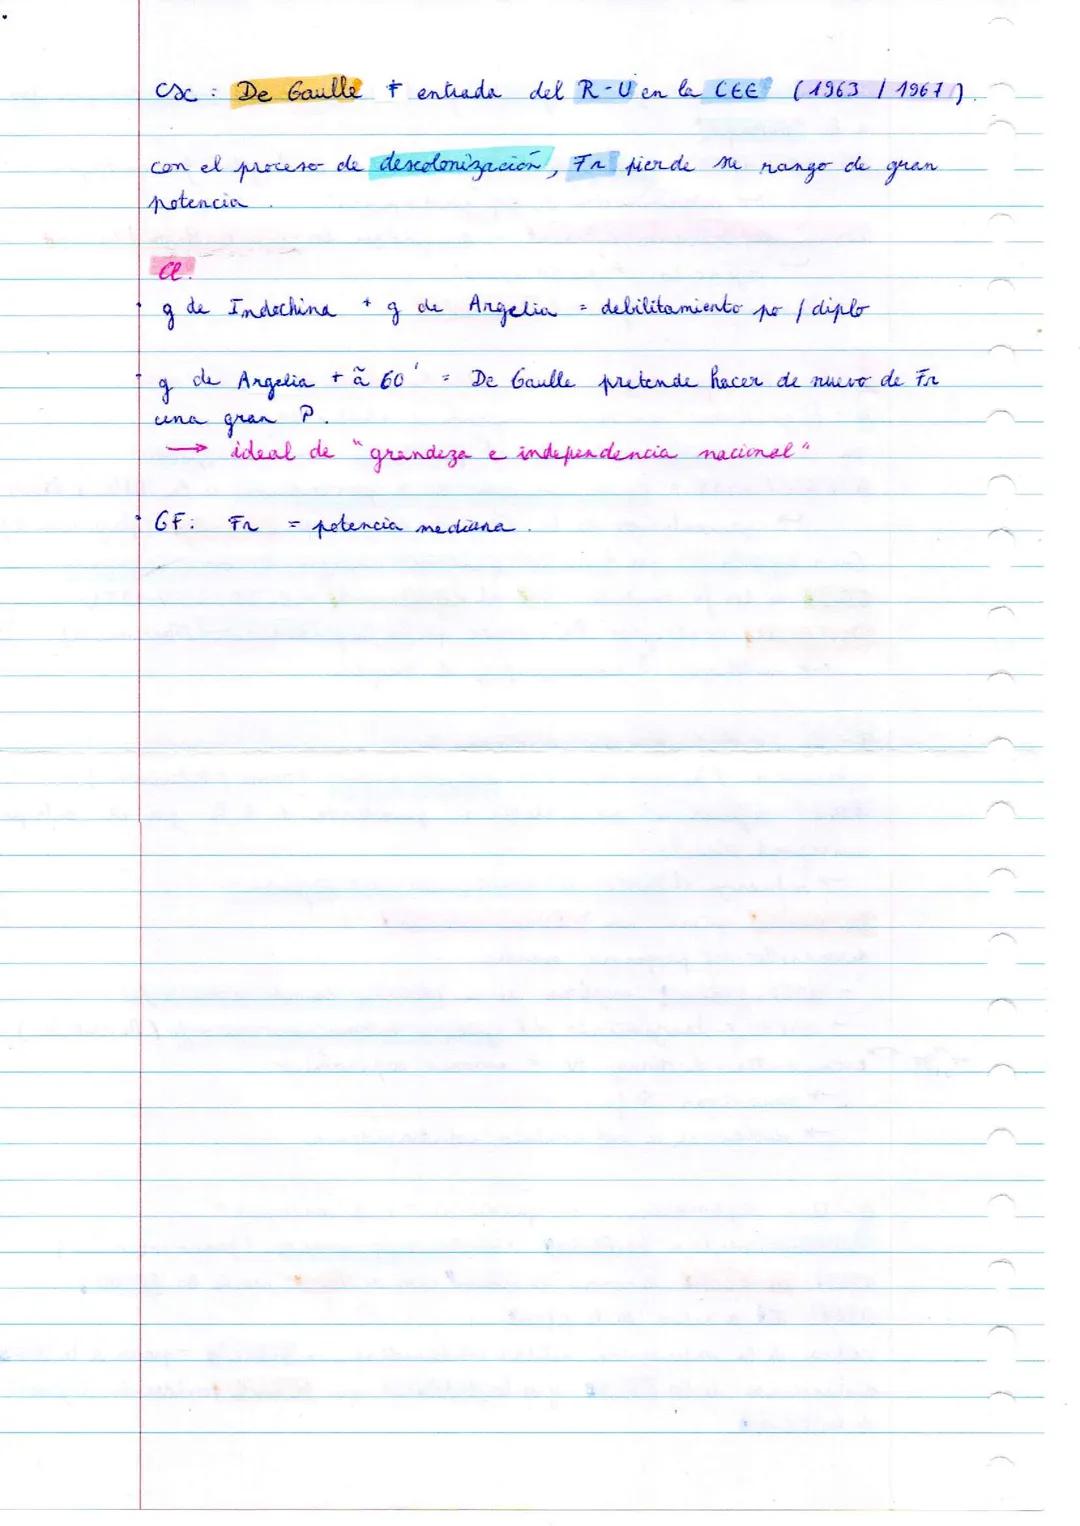 csc : De Gaulle ≠ entrada del R-U en la CEE (1963 / 1967).
con el proceso de descolonización, Fr pierde su rango de gran
potencia.
cl.
g de Indochina + g de Argelia = debilitamiento po / diplo
g de Argelia + ã 60' = De Gaulle pretende hacer de nuevo de Fr
una gran P.
→ ideal de "grandeza e independencia nacional"
GF: Fr = potencia mediana.